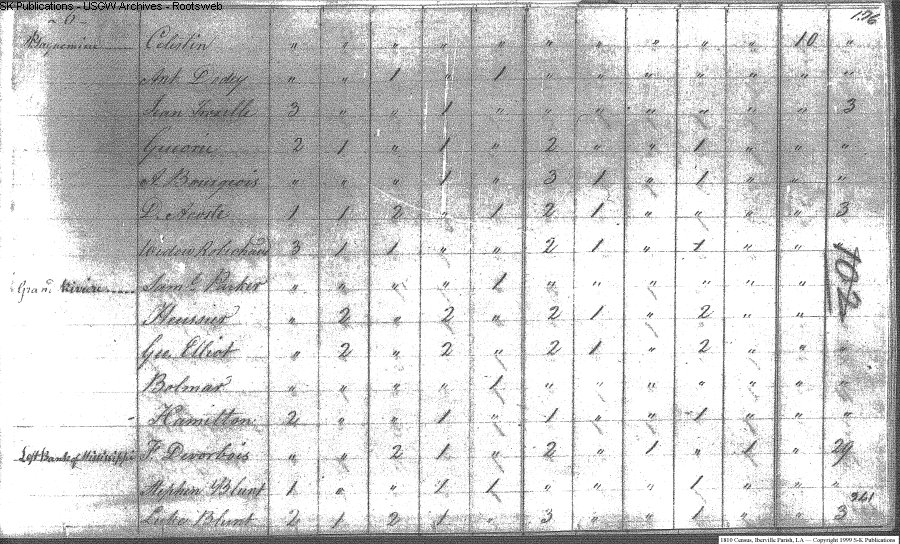 SK Publications - USGW Archives - Rootsweb
6 176
Celistin " " " " " " " " " " 10 "
Ant " " 1 " 1 " " " " " " "
Jean 3 " " " 1 " " " " " " " 3
2 1 " 1 " 2 " " 1 " " "
A Bourgeois " " " 1 " 3 1 " 1 " " "
D. Acoste 1 1 2 " 1 2 1 " " " " 3
Widow Robichaud 3 1 1 " " 2 1 " 1 " " 102
Grand Rivière Saml Parker " " " " 1 " " " " " "
" 2 " 2 " 2 1 " 2 " "
Geo. Elliot " 2 " 2 " 2 1 " 2 " " "
Bolmar " " " " 1 " " " " " " "
Hamilton 2 " " 1 " 1 " " 1 " " "
Left Bank of Mississippi F Devorbois " " 2 1 " 2 " 1 " 1 " 29
Stephen Blunt 1 " " 1 1 " " " 1 " " "
241
Luke Blunt 2 1 2 1 " 3 " " 1 " " 3
1810 Census, Iberville Parish, LA — Copyright 1999 S-K Publications